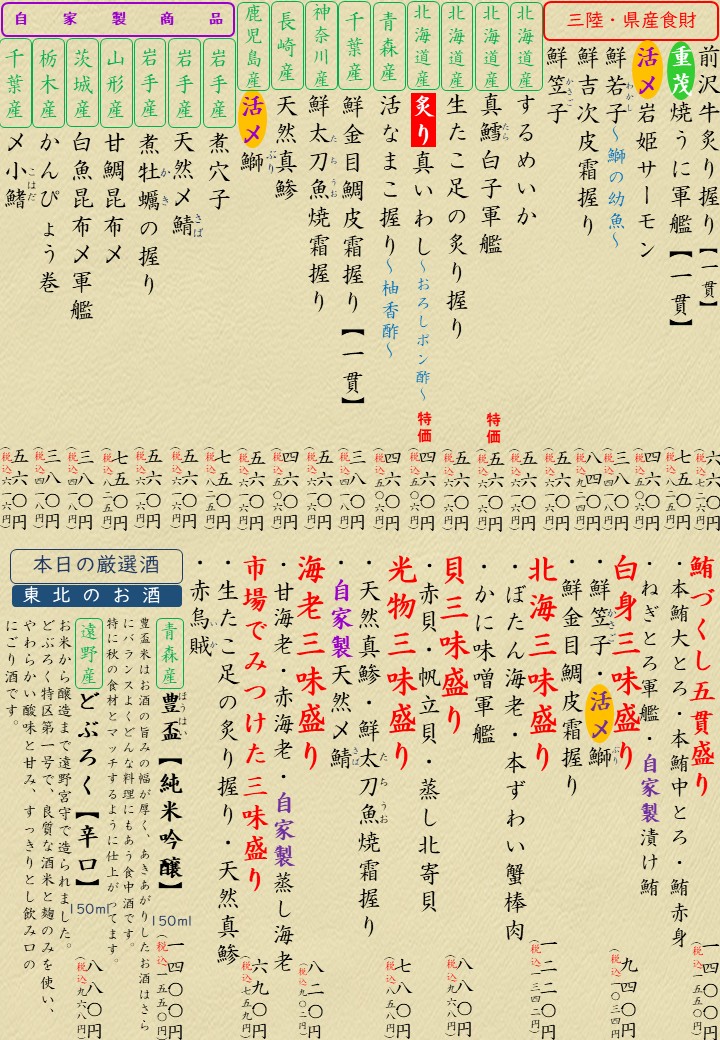 三陸・県産食財
前沢牛炙り握り【一貫】 六六〇円
(税込七二六円)
重茂 焼うに軍艦【一貫】 七五〇円
(税込八二五円)
活〆 岩姫サーモン 四六〇円
(税込五〇六円)
鮮若子～鰤の幼魚～ 三八〇円
わかし
(税込四一八円)
鮮吉次皮霜握り 八四〇円
(税込九二四円)
鮮笠子 五六〇円
かさご
(税込六一六円)
北海道産 するめいか 五六〇円
(税込六一六円)
北海道産 真鱈白子軍艦 特価 五六〇円
たら
(税込六一六円)
北海道産 生たこ足の炙り握り 五六〇円
(税込六一六円)
北海道産 炙り 真いわし～おろしポン酢～ 特価 四六〇円
(税込五〇六円)
青森産 活なまこ握り～柚香酢～ 四六〇円
(税込五〇六円)
千葉産 鮮金目鯛皮霜握り【一貫】 三八〇円
(税込四一八円)
神奈川産 鮮太刀魚焼霜握り 五六〇円
たちうお
(税込六一六円)
長崎産 天然真鯵 四六〇円
(税込五〇六円)
鹿児島産 活〆 鰤 五六〇円
ぶり
(税込六一六円)
自家製商品
岩手産 煮穴子 七五〇円
(税込八二五円)
岩手産 天然〆鯖 五六〇円
さば
(税込六一六円)
岩手産 煮牡蠣の握り 五六〇円
かき
(税込六一六円)
山形産 甘鯛昆布〆 七五〇円
(税込八二五円)
茨城産 白魚昆布〆軍艦 三八〇円
(税込四一八円)
栃木産 かんぴょう巻 三八〇円
(税込四一八円)
千葉産 〆小鰭 五六〇円
こはだ
(税込六一六円)
鮪づくし五貫盛り 一四〇〇円
(税込一五四〇円)
・本鮪大とろ・本鮪中とろ・鮪赤身
・ねぎとろ軍艦・自家製漬け鮪
白身三味盛り 九四〇円
(税込一〇三四円)
・鮮笠子・活〆 鰤
かさご ぶり
・鮮金目鯛皮霜握り
北海三味盛り 一二二〇円
(税込一三四二円)
・ぼたん海老・本ずわい蟹棒肉
・かに味噌軍艦
貝三味盛り 八八〇円
(税込九六八円)
・赤貝・帆立貝・蒸し北寄貝
光物三味盛り 七八〇円
(税込八五八円)
・天然真鯵・鮮太刀魚焼霜握り
たちうお
・自家製天然〆鯖
さば
海老三味盛り 八二〇円
(税込九〇二円)
・甘海老・赤海老・自家製蒸し海老
市場でみつけた三味盛り 六九〇円
(税込七五九円)
・生たこ足の炙り握り・天然真鯵
・赤烏賊
いか
本日の厳選酒
東北のお酒
青森産 豊盃【純米吟醸】 150ml 一四〇〇円
ほうはい
(税込一五四〇円)
豊盃米はお酒の旨みの幅が厚く、あきあがりしたお酒はさら
にバランスよくどんな料理にもあう食中酒です。
特に秋の食材とマッチするように仕上がってます。
遠野産 どぶろく【辛口】 150ml 八八〇円
(税込九六八円)
お米から醸造まで遠野宮守で造られました。
どぶろく特区第一号で、良質な酒米と麹のみを使い、
やわらかい酸味と甘み、すっきりとし飲み口の
にごり酒です。